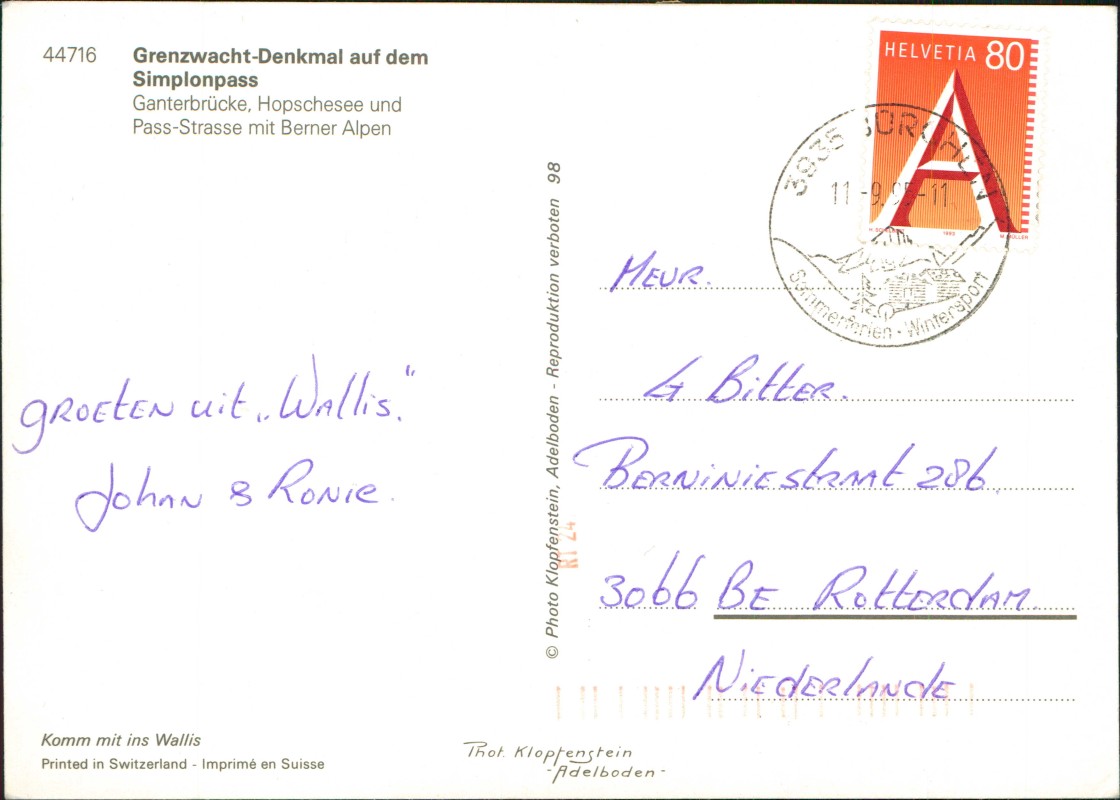 44716 Grenzwacht-Denkmal auf dem
Simplonpass
Ganterbrücke, Hopschesee und
Pass-Strasse mit Berner Alpen
HELVETIA 80
A
1993
3935 BÜRCHEN
11-9.95-11
Sommerferien - Wintersport
groeten uit „Wallis.“
Johan & Ronie.
© Photo Klopfenstein, Adelboden - Reproduktion verboten 98
RI 24
Meur.
G Bitter.
Berniniestraat 286.
3066 BE Rotterdam.
Niederlande
Komm mit ins Wallis
Printed in Switzerland - Imprimé en Suisse
Phot. Klopfenstein
-Adelboden-